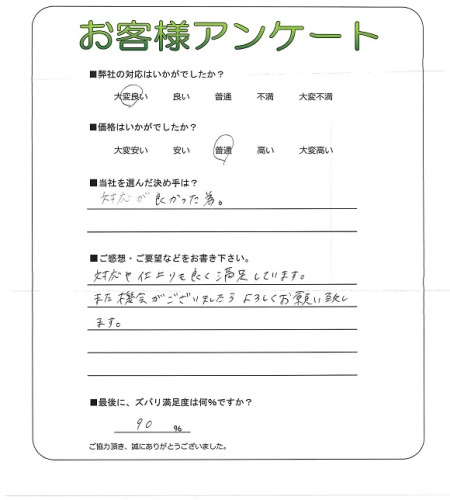 お客様アンケート
■弊社の対応はいかがでしたか？
大変良い 良い 普通 不満 大変不満
■価格はいかがでしたか？
大変安い 安い 普通 高い 大変高い
■当社を選んだ決め手は？
対応が良かった為。
■ご感想・ご要望などをお書き下さい。
対応や仕上りも良く満足しています。
また機会がございましたらよろしくお願い致し
ます。
■最後に、ズバリ満足度は何%ですか？
90 %
ご協力頂き、誠にありがとうございました。